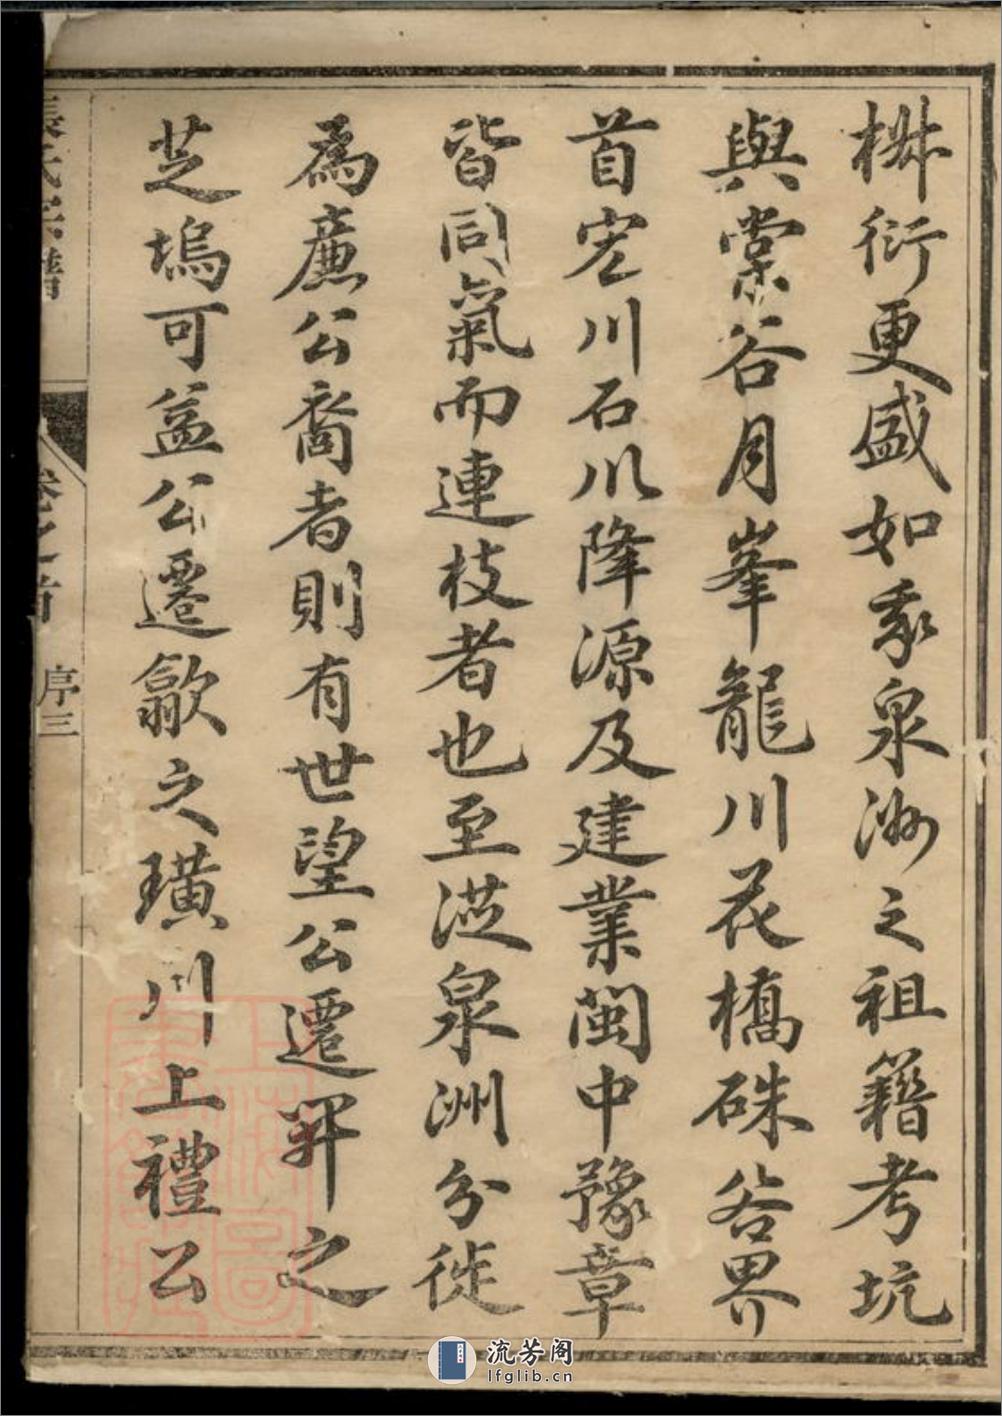 椒衍更盛如我泉洲之祖籍考坑
與棠谷月峯龍川花橋硃谷界
首宏川石川降源及建業閩中豫章
皆同氣而連枝者也至從泉洲分徙
為廉公裔者則有世望公遷開之
芝塢可益公遷歙之璜川上禮公
張氏宗譜
卷之首
序三
上海圖書館藏
流芳阁
lfglib.cn